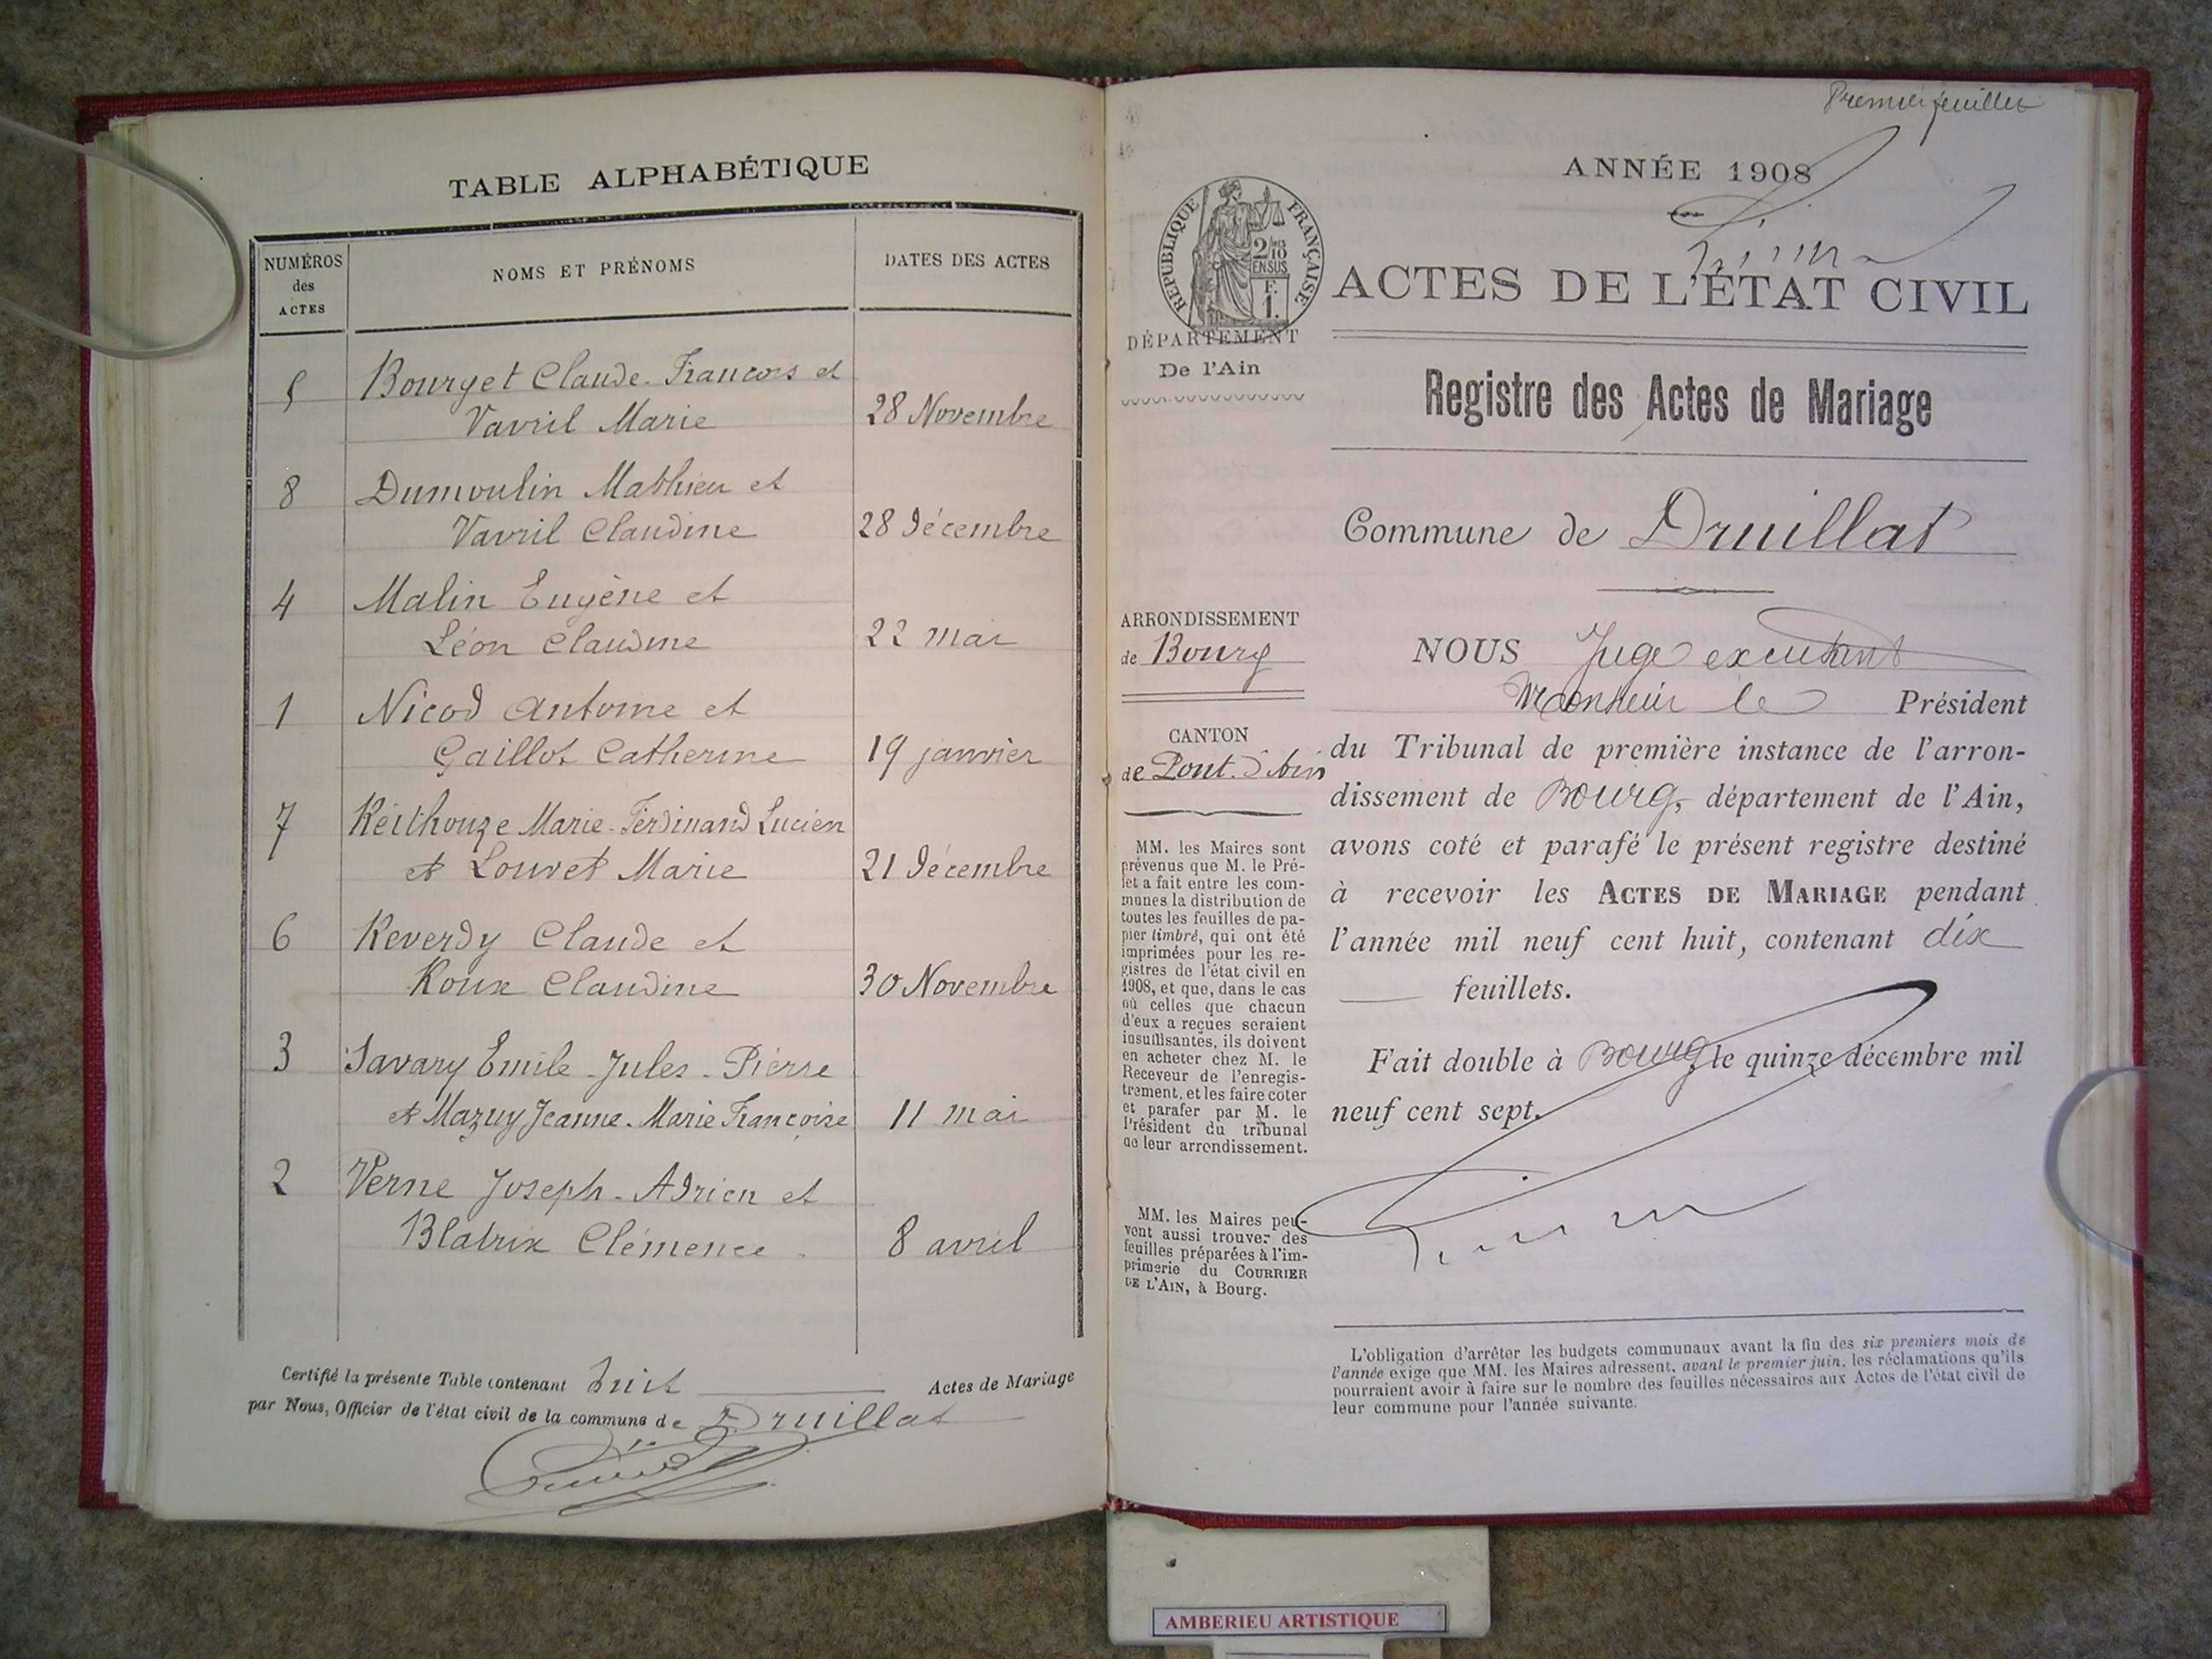 TABLE ALPHABÉTIQUE
NUMÉROS des ACTES
NOMS ET PRÉNOMS
DATES DES ACTES
5 Bourget Claude-François et
Vavril Marie 28 Novembre
8 Dumoulin Mathieu et
Vavril Claudine 28 décembre
4 Malin Eugène et
Léon Claudine 22 mai
1 Nicod Antoine et
Gaillot Catherine 19 janvier
7 Marie-Ferdinand Lucien
et Louvet Marie 21 décembre
6 Reverdy Claude et
Roux Claudine 30 Novembre
3 Savary Emile-Jules-Pierre
et Mazuy Jeanne-Marie Françoise 11 mai
2 Verne Joseph-Adrien et
Blatrix Clémence 8 avril
Certifié la présente Table contenant huit Actes de Mariage
par Nous, Officier de l'état civil de la commune de Druillat
Premier feuillet
ANNÉE 1908
RÉPUBLIQUE FRANÇAISE
2/10
EN SUS
F.
1.
ACTES DE L'ÉTAT CIVIL
DÉPARTEMENT
De l'Ain
Registre des Actes de Mariage
Commune de Druillat
ARRONDISSEMENT
de Bourg
CANTON
de Pont-d'Ain
MM. les Maires sont
prévenus que M. le Pré-
fet a fait entre les com-
munes la distribution de
toutes les feuilles de pa-
pier timbré, qui ont été
imprimées pour les re-
gistres de l'état civil en
1908, et que, dans le cas
où celles que chacun
d'eux a reçues seraient
insuffisantes, ils doivent
en acheter chez M. le
Receveur de l'enregis-
trement, et les faire coter
et parafer par M. le
Président du tribunal
de leur arrondissement.
MM. les Maires peu-
vent aussi trouver des
feuilles préparées à l'im-
primerie du COURRIER
DE L'AIN, à Bourg.
NOUS Juge
Monsieur le Président
du Tribunal de première instance de l'arron-
dissement de Bourg, département de l'Ain,
avons coté et parafé le présent registre destiné
à recevoir les ACTES DE MARIAGE pendant
l'année mil neuf cent huit, contenant dix
feuillets.
Fait double à Bourg, le quinze décembre mil
neuf cent sept.
L'obligation d'arrêter les budgets communaux avant la fin des six premiers mois de
l'année exige que MM. les Maires adressent, avant le premier juin, les réclamations qu'ils
pourraient avoir à faire sur le nombre des feuilles nécessaires aux Actes de l'état civil de
leur commune pour l'année suivante.
AMBERIEU ARTISTIQUE